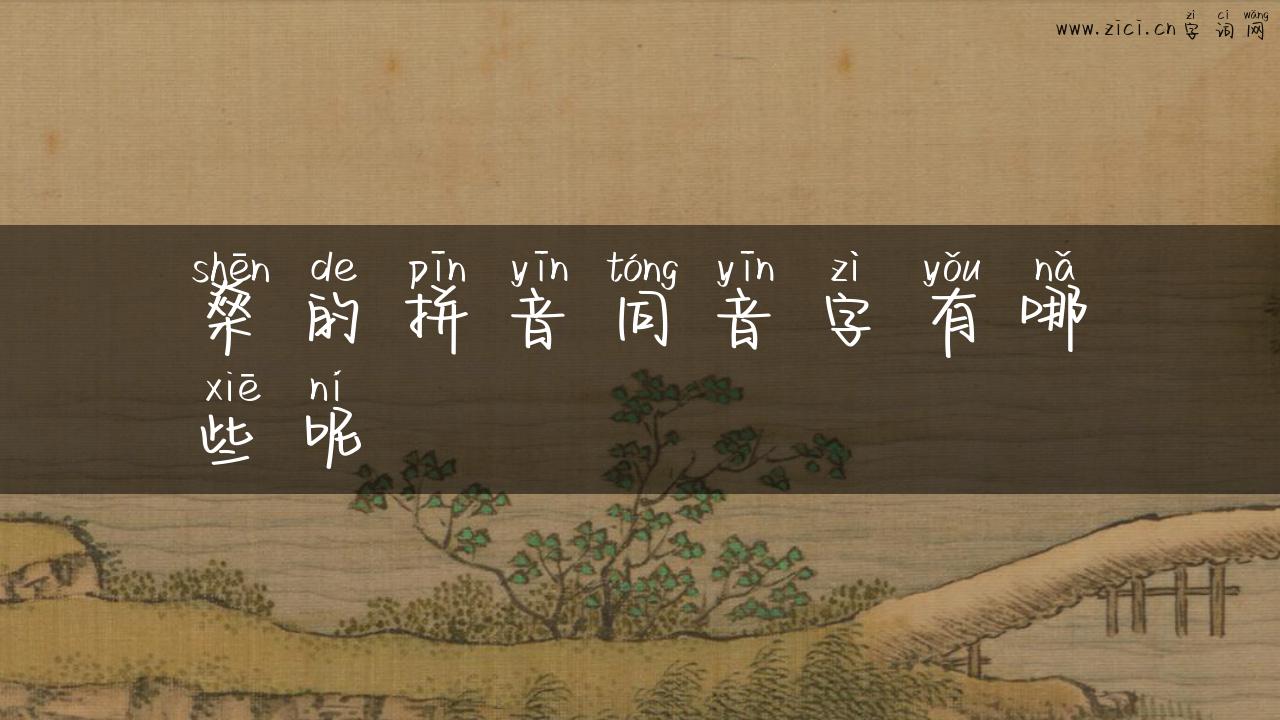 zì cí wǎng
www.zici.cn 字词网
shēn de pīn yīn tóng yīn zì yǒu nǎ
燊的拼音同音字有哪
xiē ní
些呢